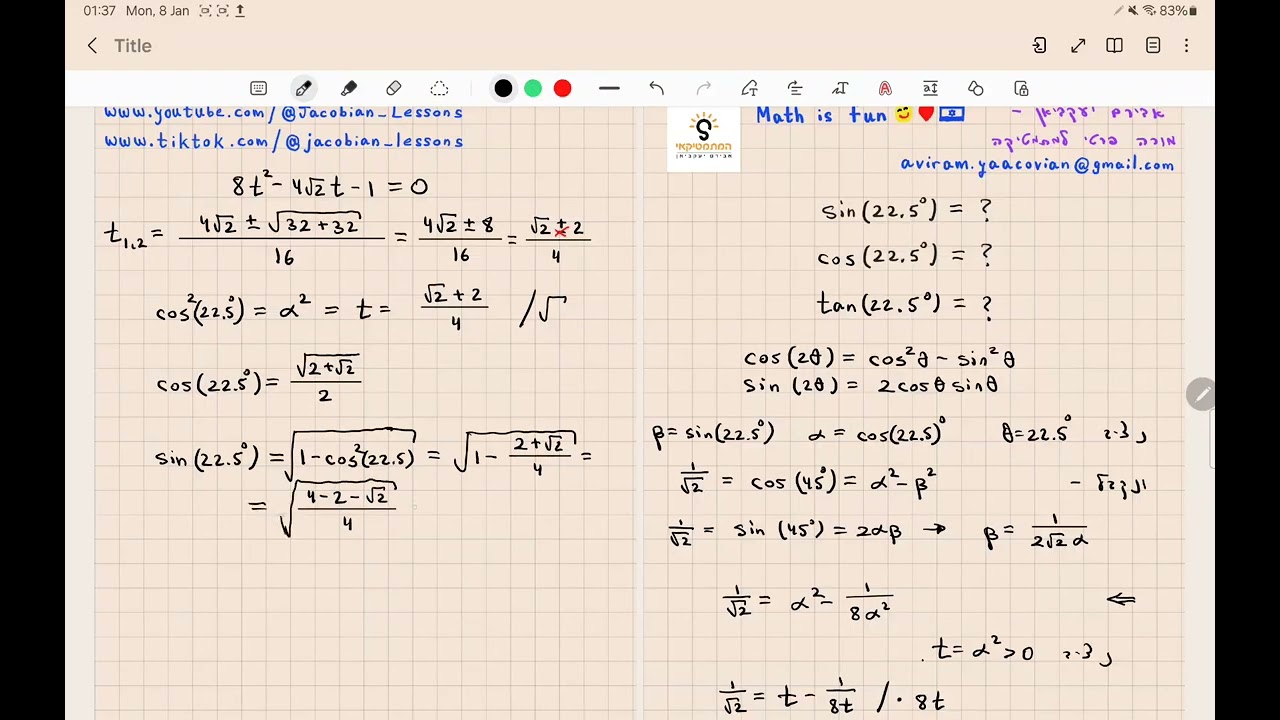 01:37 Mon, 8 Jan
83%
Title
www.youtube.com/@Jacobian_Lessons
www.tiktok.com/@jacobian_lessons
8t² - 4√2 t - 1 = 0
t₁,₂ = (4√2 ± √(32+32))/16 = (4√2 ± 8)/16 = (√2 ± 2)/4
cos²(22.5°) = α² = t = (√2 + 2)/4 /√
cos(22.5°) = √(2+√2)/2
sin(22.5°) = √(1-cos²(22.5)) = √(1 - (2+√2)/4) =
= √((4-2-√2)/4)
המתמטיקאי
אבירם יעקביאן
Math is fun 😊❤️🇮🇱
אבירם יעקביאן -
מורה פרטי למתמטיקה
aviram.yaacovian@gmail.com
sin(22.5°) = ?
cos(22.5°) = ?
tan(22.5°) = ?
cos(2θ) = cos²θ - sin²θ
sin(2θ) = 2cosθsinθ
β = sin(22.5°) α = cos(22.5)° θ=22.5° נציב
1/√2 = cos(45°) = α² - β² ונקבל -
1/√2 = sin(45°) = 2αβ → β = 1/(2√2 α)
1/√2 = α² - 1/(8α²) ⇐
t = α² > 0 נציב
1/√2 = t - 1/(8t) /· 8t